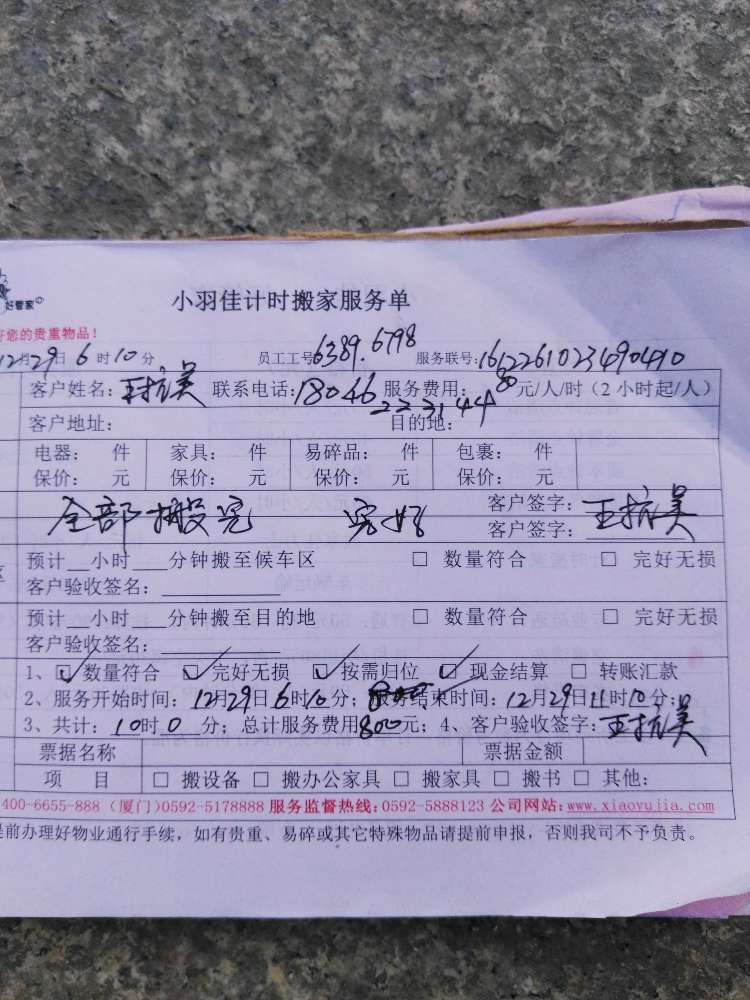 好管家
小羽佳计时搬家服务单
好您的贵重物品！
12月29日6时10分 员工工号:6389.6798 服务联号:1612261023490410
客户姓名:王抗美 联系电话:18046 服务费用:80元/人/时（2小时起/人）
223144
客户地址: 目的地:
电器: 件 家具: 件 易碎品: 件 包裹: 件
保价: 元 保价: 元 保价: 元 保价: 元
全部搬完 完好 客户签字:王抗美
客户签字:
预计__小时___分钟搬至候车区 □ 数量符合 □ 完好无损
客户验收签名:
预计__小时___分钟搬至目的地 □ 数量符合 □ 完好无损
客户验收签名:
1、☑数量符合 ☑完好无损 ☑按需归位 ☑现金结算 □ 转账汇款
2、服务开始时间:12月29日6时10分; 服务结束时间:12月29日11时10分;
3、共计:10时0分; 总计服务费用800元; 4、客户验收签字:王抗美
票据名称 票据金额
项 目 □ 搬设备 □ 搬办公家具 □ 搬家具 □ 搬书 □ 其他:
400-6655-888（厦门)0592-5178888 服务监督热线:0592-5888123 公司网站:www.xiaoyujia.com
提前办理好物业通行手续，如有贵重、易碎或其它特殊物品请提前申报，否则我司不予负责。